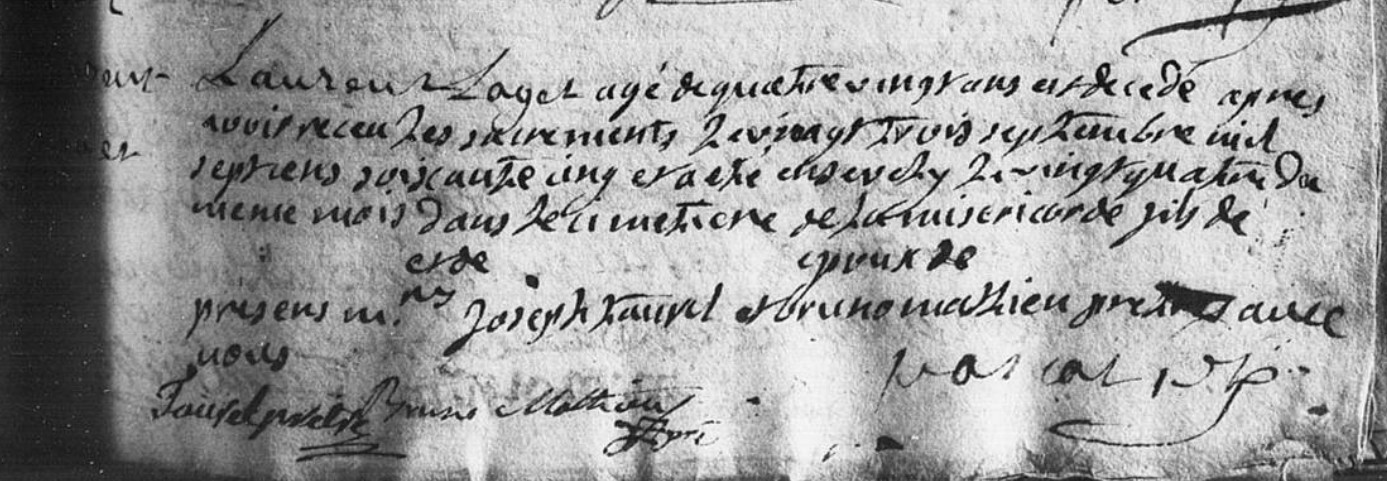 Laurent Laget agé de quatre vingt ans est decedé apres
avoir receu les sacrements le vingt trois septembre mil
sept cens soixante cinq et a eté ensevely le vingt quatre du
meme mois dans le cimetiere de la misericorde fils de
et de epoux de
présens m.rs Joseph Taurel et bruno mathieu pretres avec
nous
pascal
Taurel pretre Bruno Mathieu